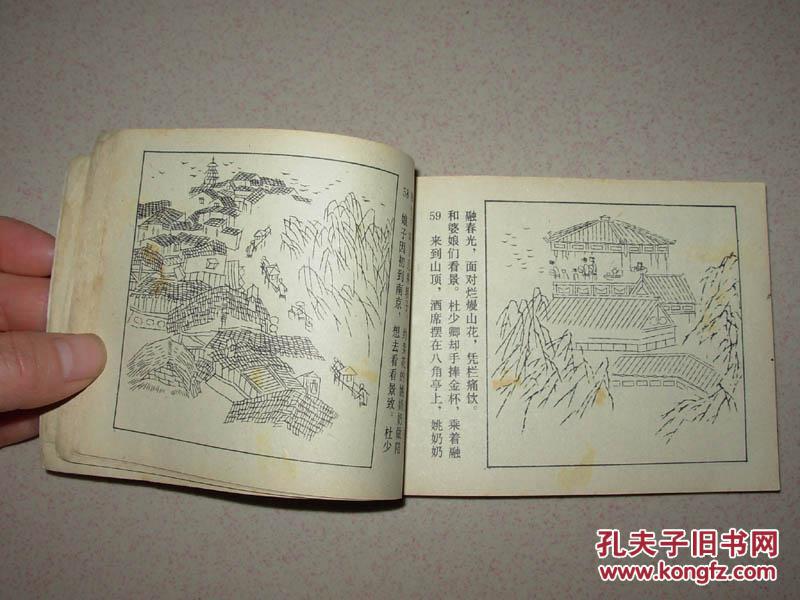 58 娘子因初到南京，想去看看景致。杜少
的姚奶奶做陪
59 来到山顶，酒席摆在八角亭上，姚奶奶
和婆娘们看景。杜少卿却手捧金杯，乘着融
融春光，面对烂熳山花，凭栏痛饮。
酒
孔夫子旧书网
www.kongfz.com